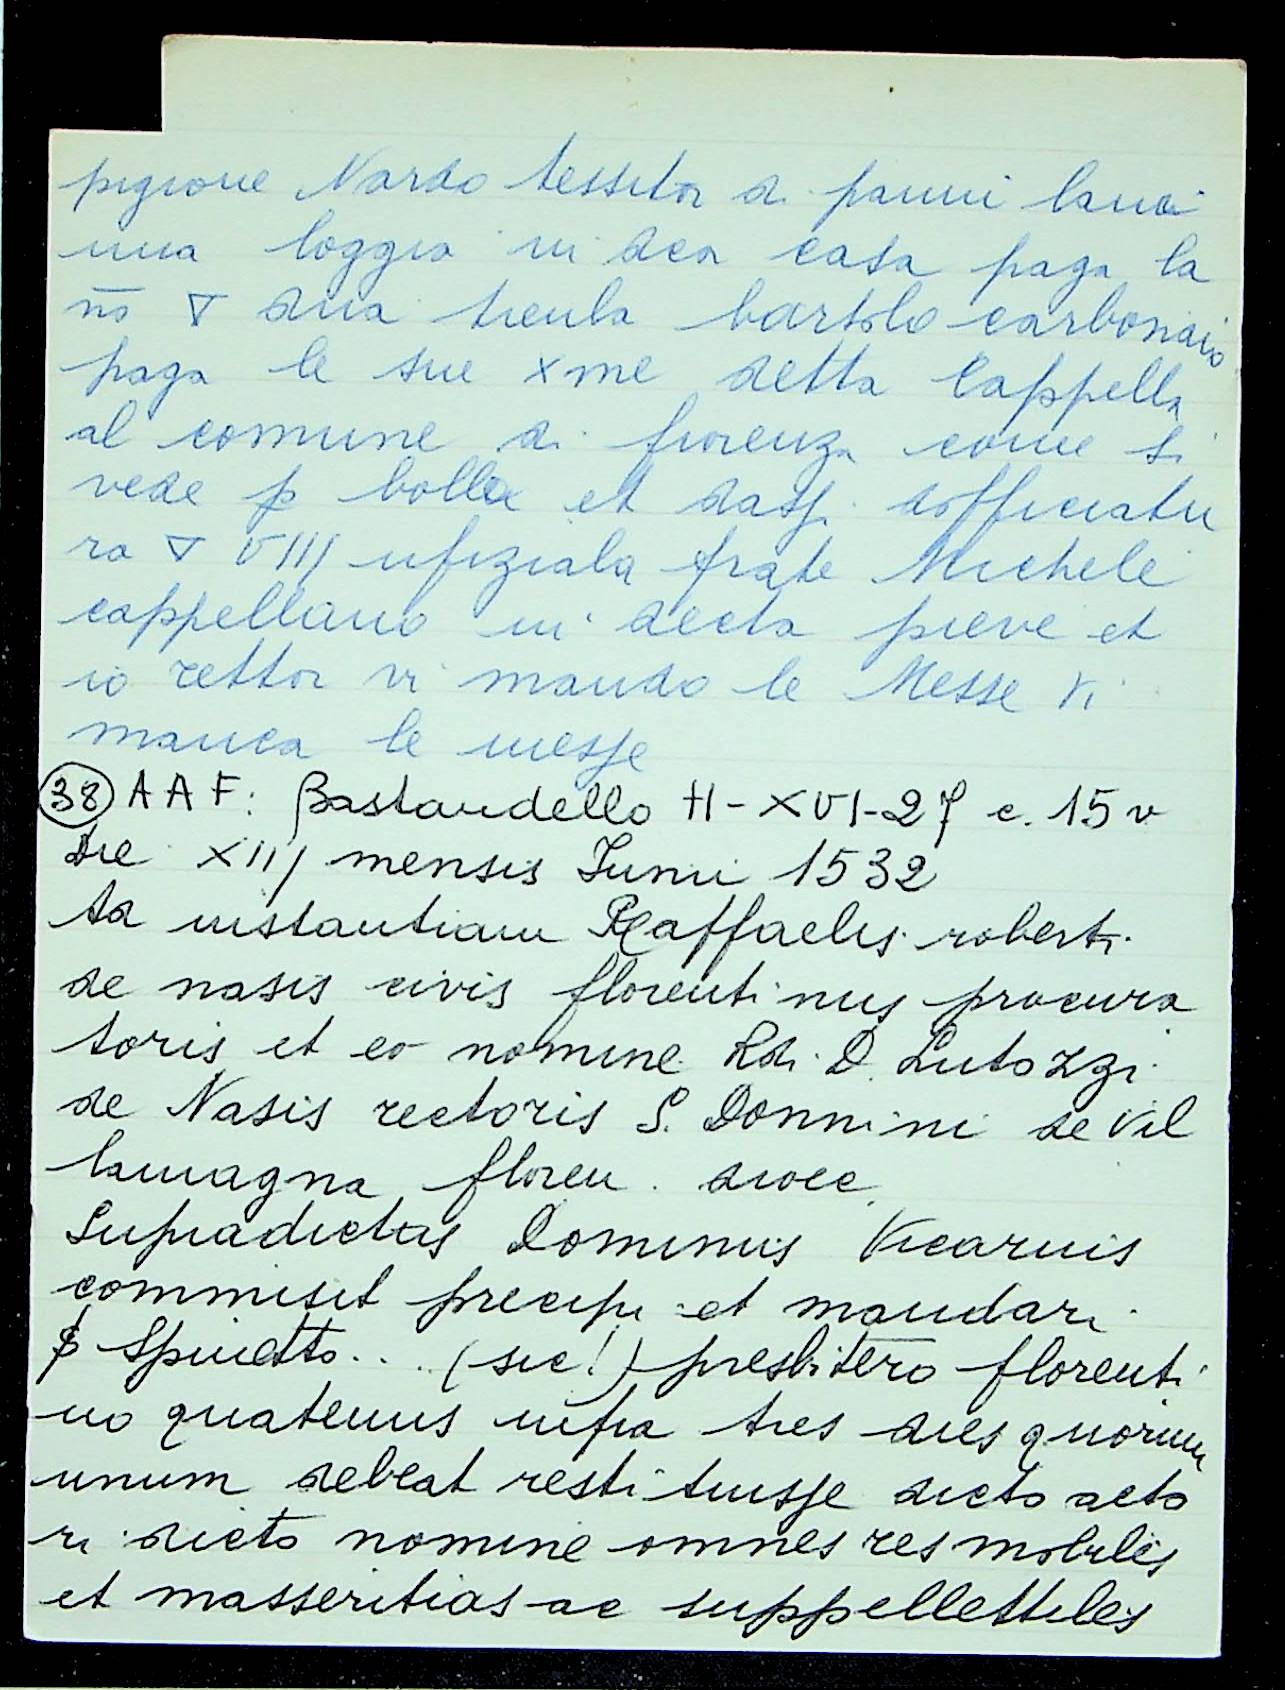 pigione Nardo tessitor di panni lani
una loggia in dca casa paga la
no ∇ dua tienla bartolo carbonaio
paga le sue xme detta Cappella
al comune di fiorenza come si
vede p bolla et dassi dofficiatu
ra ∇ VIII ufiziala frate Michele
cappellano in decta pieve et
io rettor vi mando le Messe vi
manca le messe
(38) A A F: Bastardello H-XVI-27 c. 15 v
Die XIIJ mensis Iunii 1532
Ad instantiam Raffaelis roberti
de nasis civis florentinus procura
toris et eo nomine Rdi. D. Lutozzi
de Nasis rectoris S. Donnini de Vil
lamagna floren. dioec.
Supradictus Dominus Vicarius
commisit precipi et mandari
p Spinetto... (sic!) presbitero florenti
no quatenus infra tres dies quorum
unum debeat restituisse dicto acto
ri dicto nomine omnes res mobiles
et masseritias ac suppellettiles